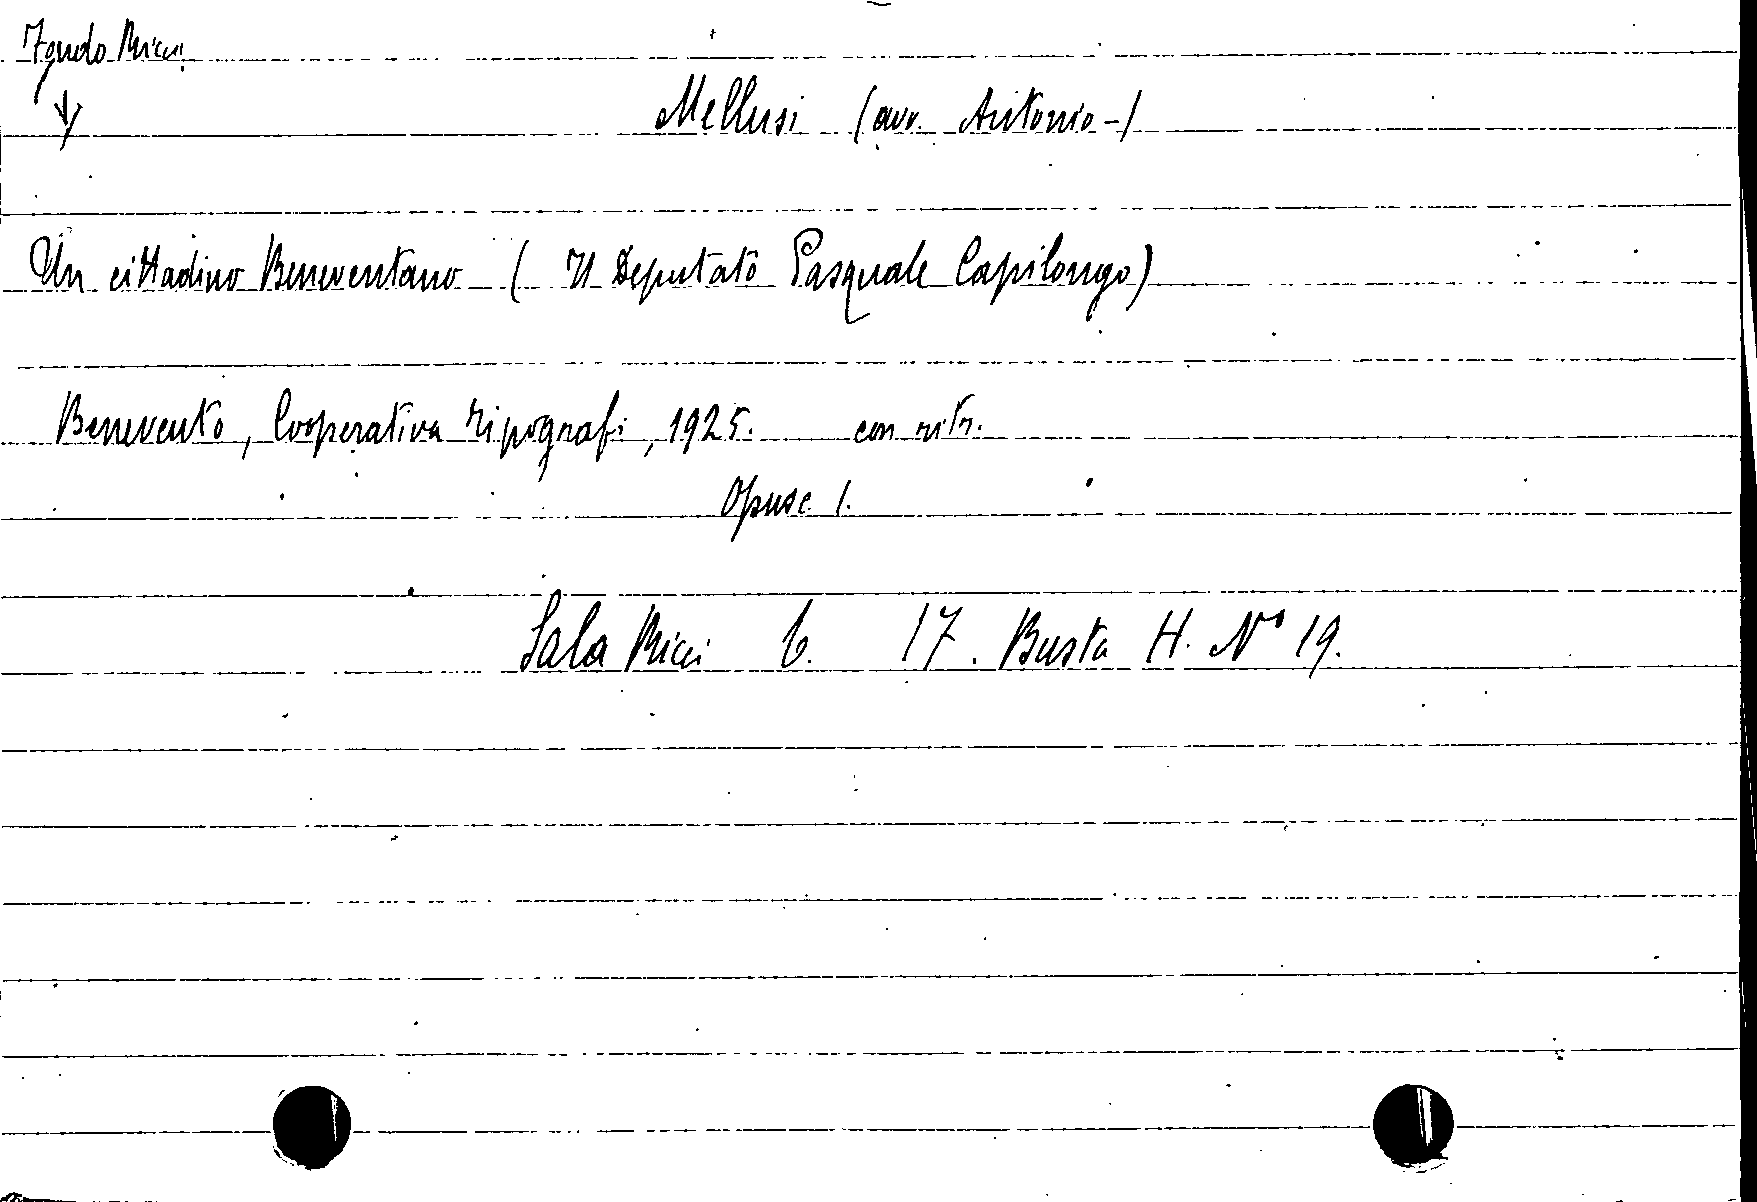 Fondo Ricci
Mellusi (avv. Antonio -)
Un cittadino Beneventano ( Il Deputato Pasquale Capilongo)
Benevento, Cooperativa Tipografi, 1925. con ritr.
Opusc. 1.
Sala Ricci C. 17. Busta H. N° 19.